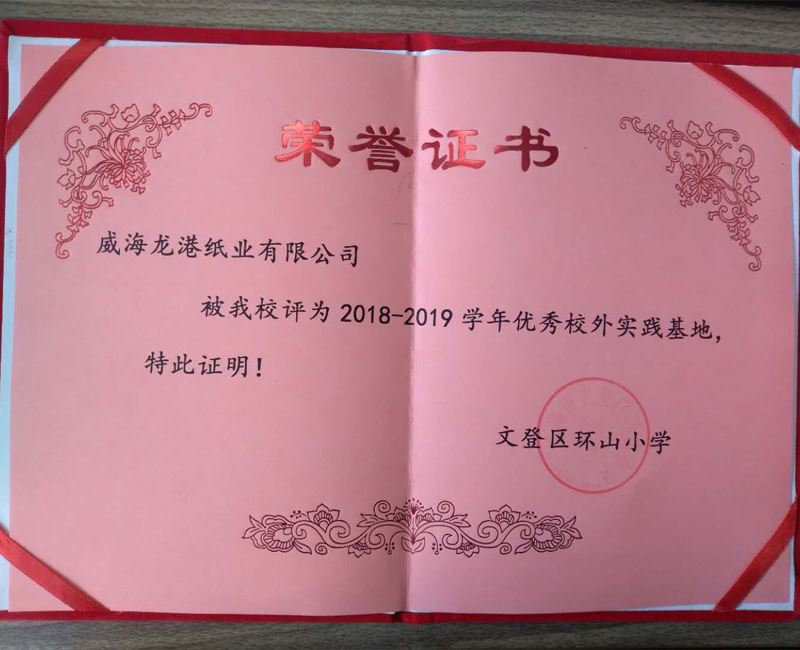 荣誉证书
威海龙港纸业有限公司
被我校评为 2018-2019 学年优秀校外实践基地，
特此证明！
文登区环山小学